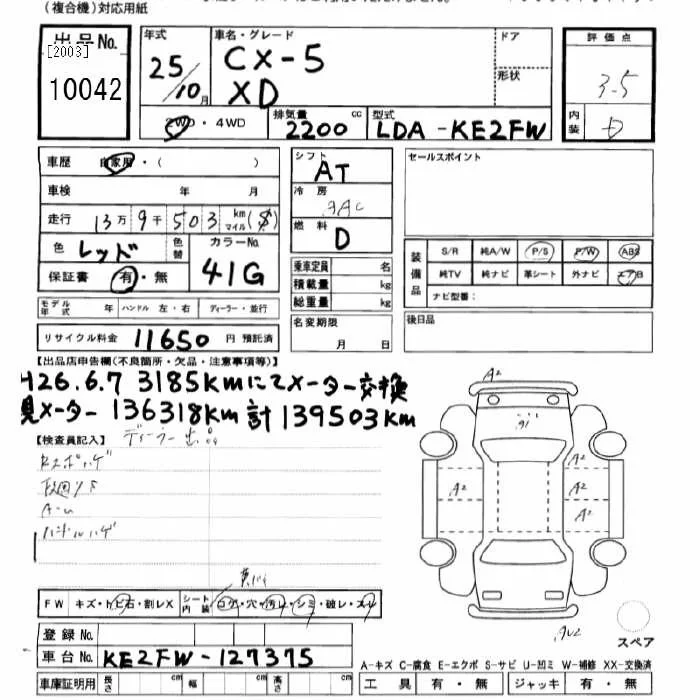 (複合機)対応用紙
出品No. 年式 車名・グレード ドア 評価点
[2003] 25/10月 CX-5 形状 3.5
10042 XD 内装 D
2WD・4WD 排気量 2200 cc 型式 LDA-KE2FW
車歴 自家用・( ) シフト AT セールスポイント
車検 年 月 冷房 AAC
走行 13万9千503 km マイル($) 燃料 D
色 レッド 色替 カラーNo. 41G
保証書 有・無
乗車定員 名
積載量 kg
総重量 kg
装備品 S/R 純A/W P/S P/W ABS
純TV 純ナビ 革シート 外ナビ エアB
ナビ型番:
モデル年式 年 ハンドル 左・右 ディーラー・並行
名変期限 月 日 後日品
リサイクル料金 11650 円 預託済
【出品店申告欄(不良箇所・欠品・注意事項等)】
H26.6.7 3185kmにてメーター交換
見メーター 136318km 計 139503km
【検査員記入】
A2
A2 A2
A2 A2
FW キズ・トビ石・割レX シート内装 コゲ・穴・汚レ・シミ・破レ・スレ
登録No.
車台No. KE2FW-127375
スペア
A-キズ C-腐食 E-エクボ S-サビ U-凹ミ W-補修 XX-交換済
車庫証明用 長さ cm 幅 cm 高さ cm 工具 有・無 ジャッキ 有・無